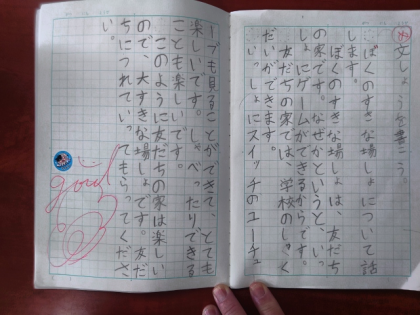 文しょうを書こう。
ぼくのすきな場しょについて話
します。
ぼくのすきな場しょは、友だち
の家です。なぜかというと、いっ
しょにゲームができるからです。
友だちの家では、学校のしゅく
だいができます。
いっしょにスイッチのユーチュ
ーブも見ることができて、とても
楽しいです。しゃべったりできる
ことも楽しいです。
このように友だちの家は楽しい
ので、大すきな場しょです。友だ
ちにつれていってもらってくださ
い。
good